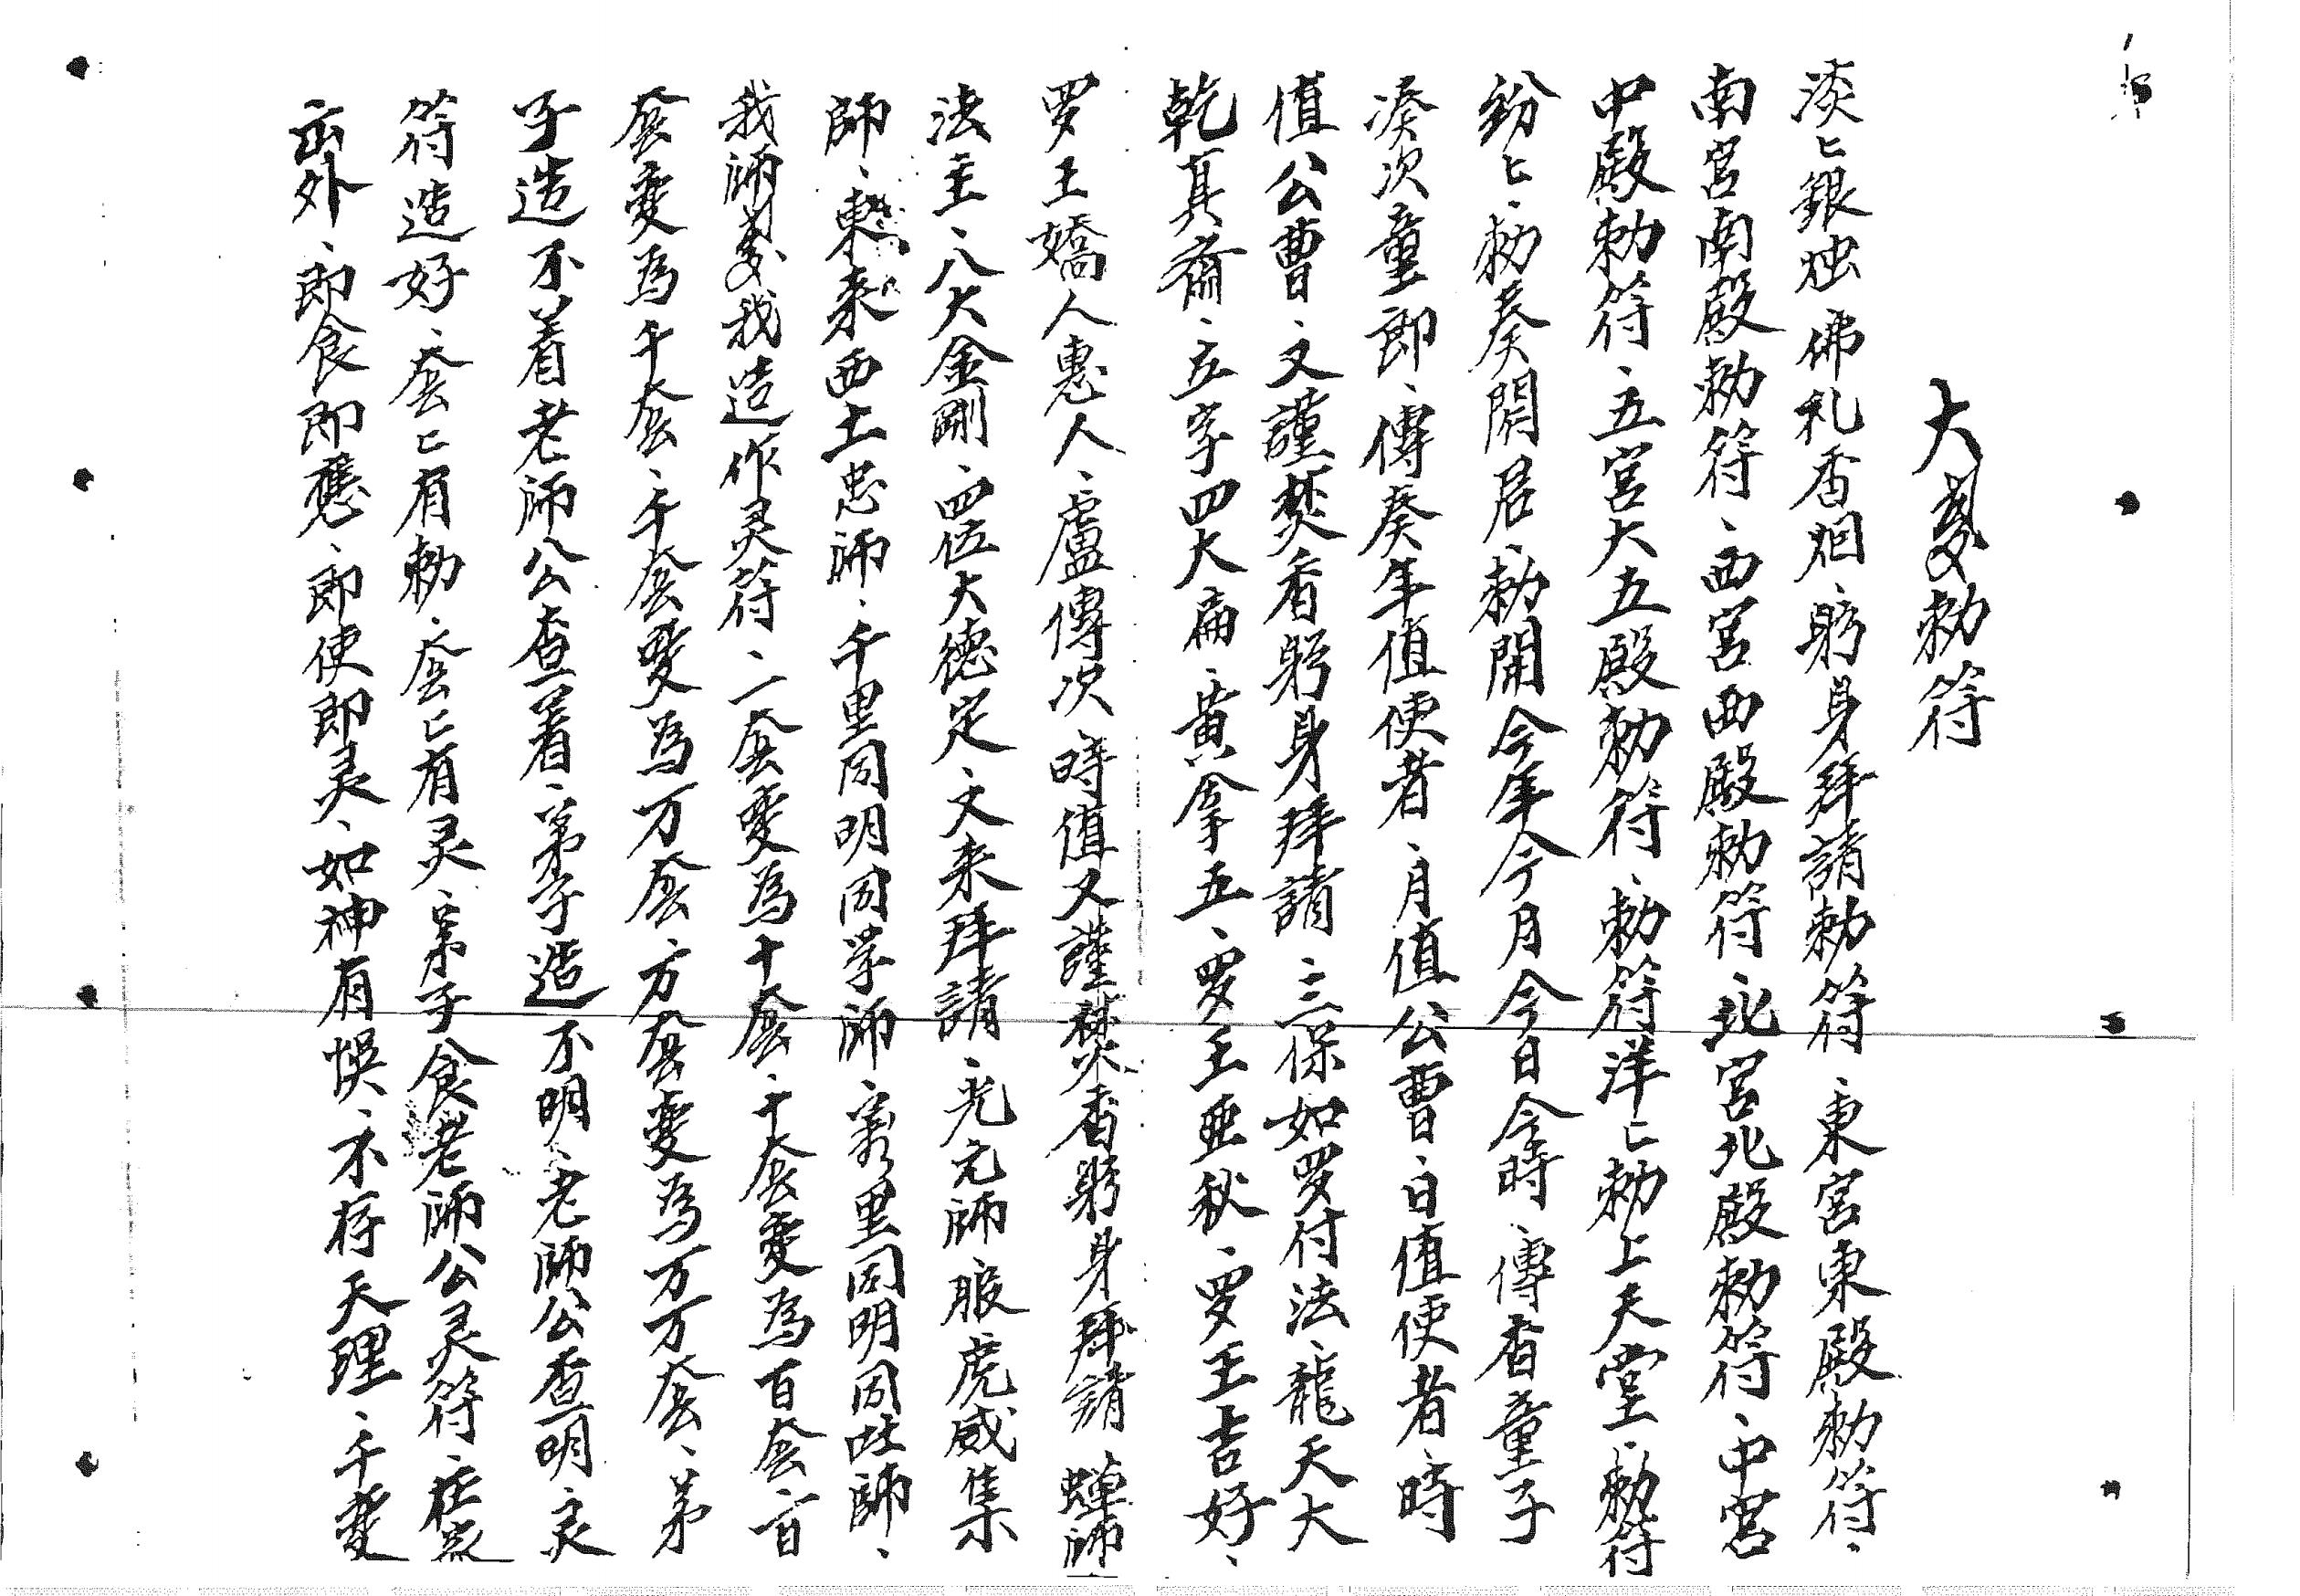 大变勅符
淡匕銀烛、佛礼香烟、躬身拜請勅符、東宮東殿勅符、
南宮南殿勅符、西宮西殿勅符、北宮北殿勅符、中宮
中殿勅符、五宮大五殿勅符、勅符洋匕勅上天堂、勅符
紛匕、勅奏閞居、勅開今年今月今日今時、傳香童子
凑次童郎、傳奏年值使者、月值公曹、日值使者、時
值公曹、又謹焚香躬身拜請、三保如罗付法、龍天大
乾其齋、五字四大扁、黄拿五、罗王亜狄、罗王吉好、
罗王嬌人惠人、盧傳次、時值又謹焚香躬身拜請、蟬師
法主、八大金剛、四位大德定、文来拜請、光元師服虎威集
師、東来西土忠師、千里同明同学師、里同明同师、
我師变我造作灵符、一套變為十套、十套變為百套、百
套變為千套、千套變為万套、万套變為万万套、弟
子造不着老師公查着、弟子造不明、老師公查明、灵
符造好、套匕有勅、套匕有灵、弟子食老師公灵符、在
出外、即食即應、即使即灵、如神有悞、不存天理、千變